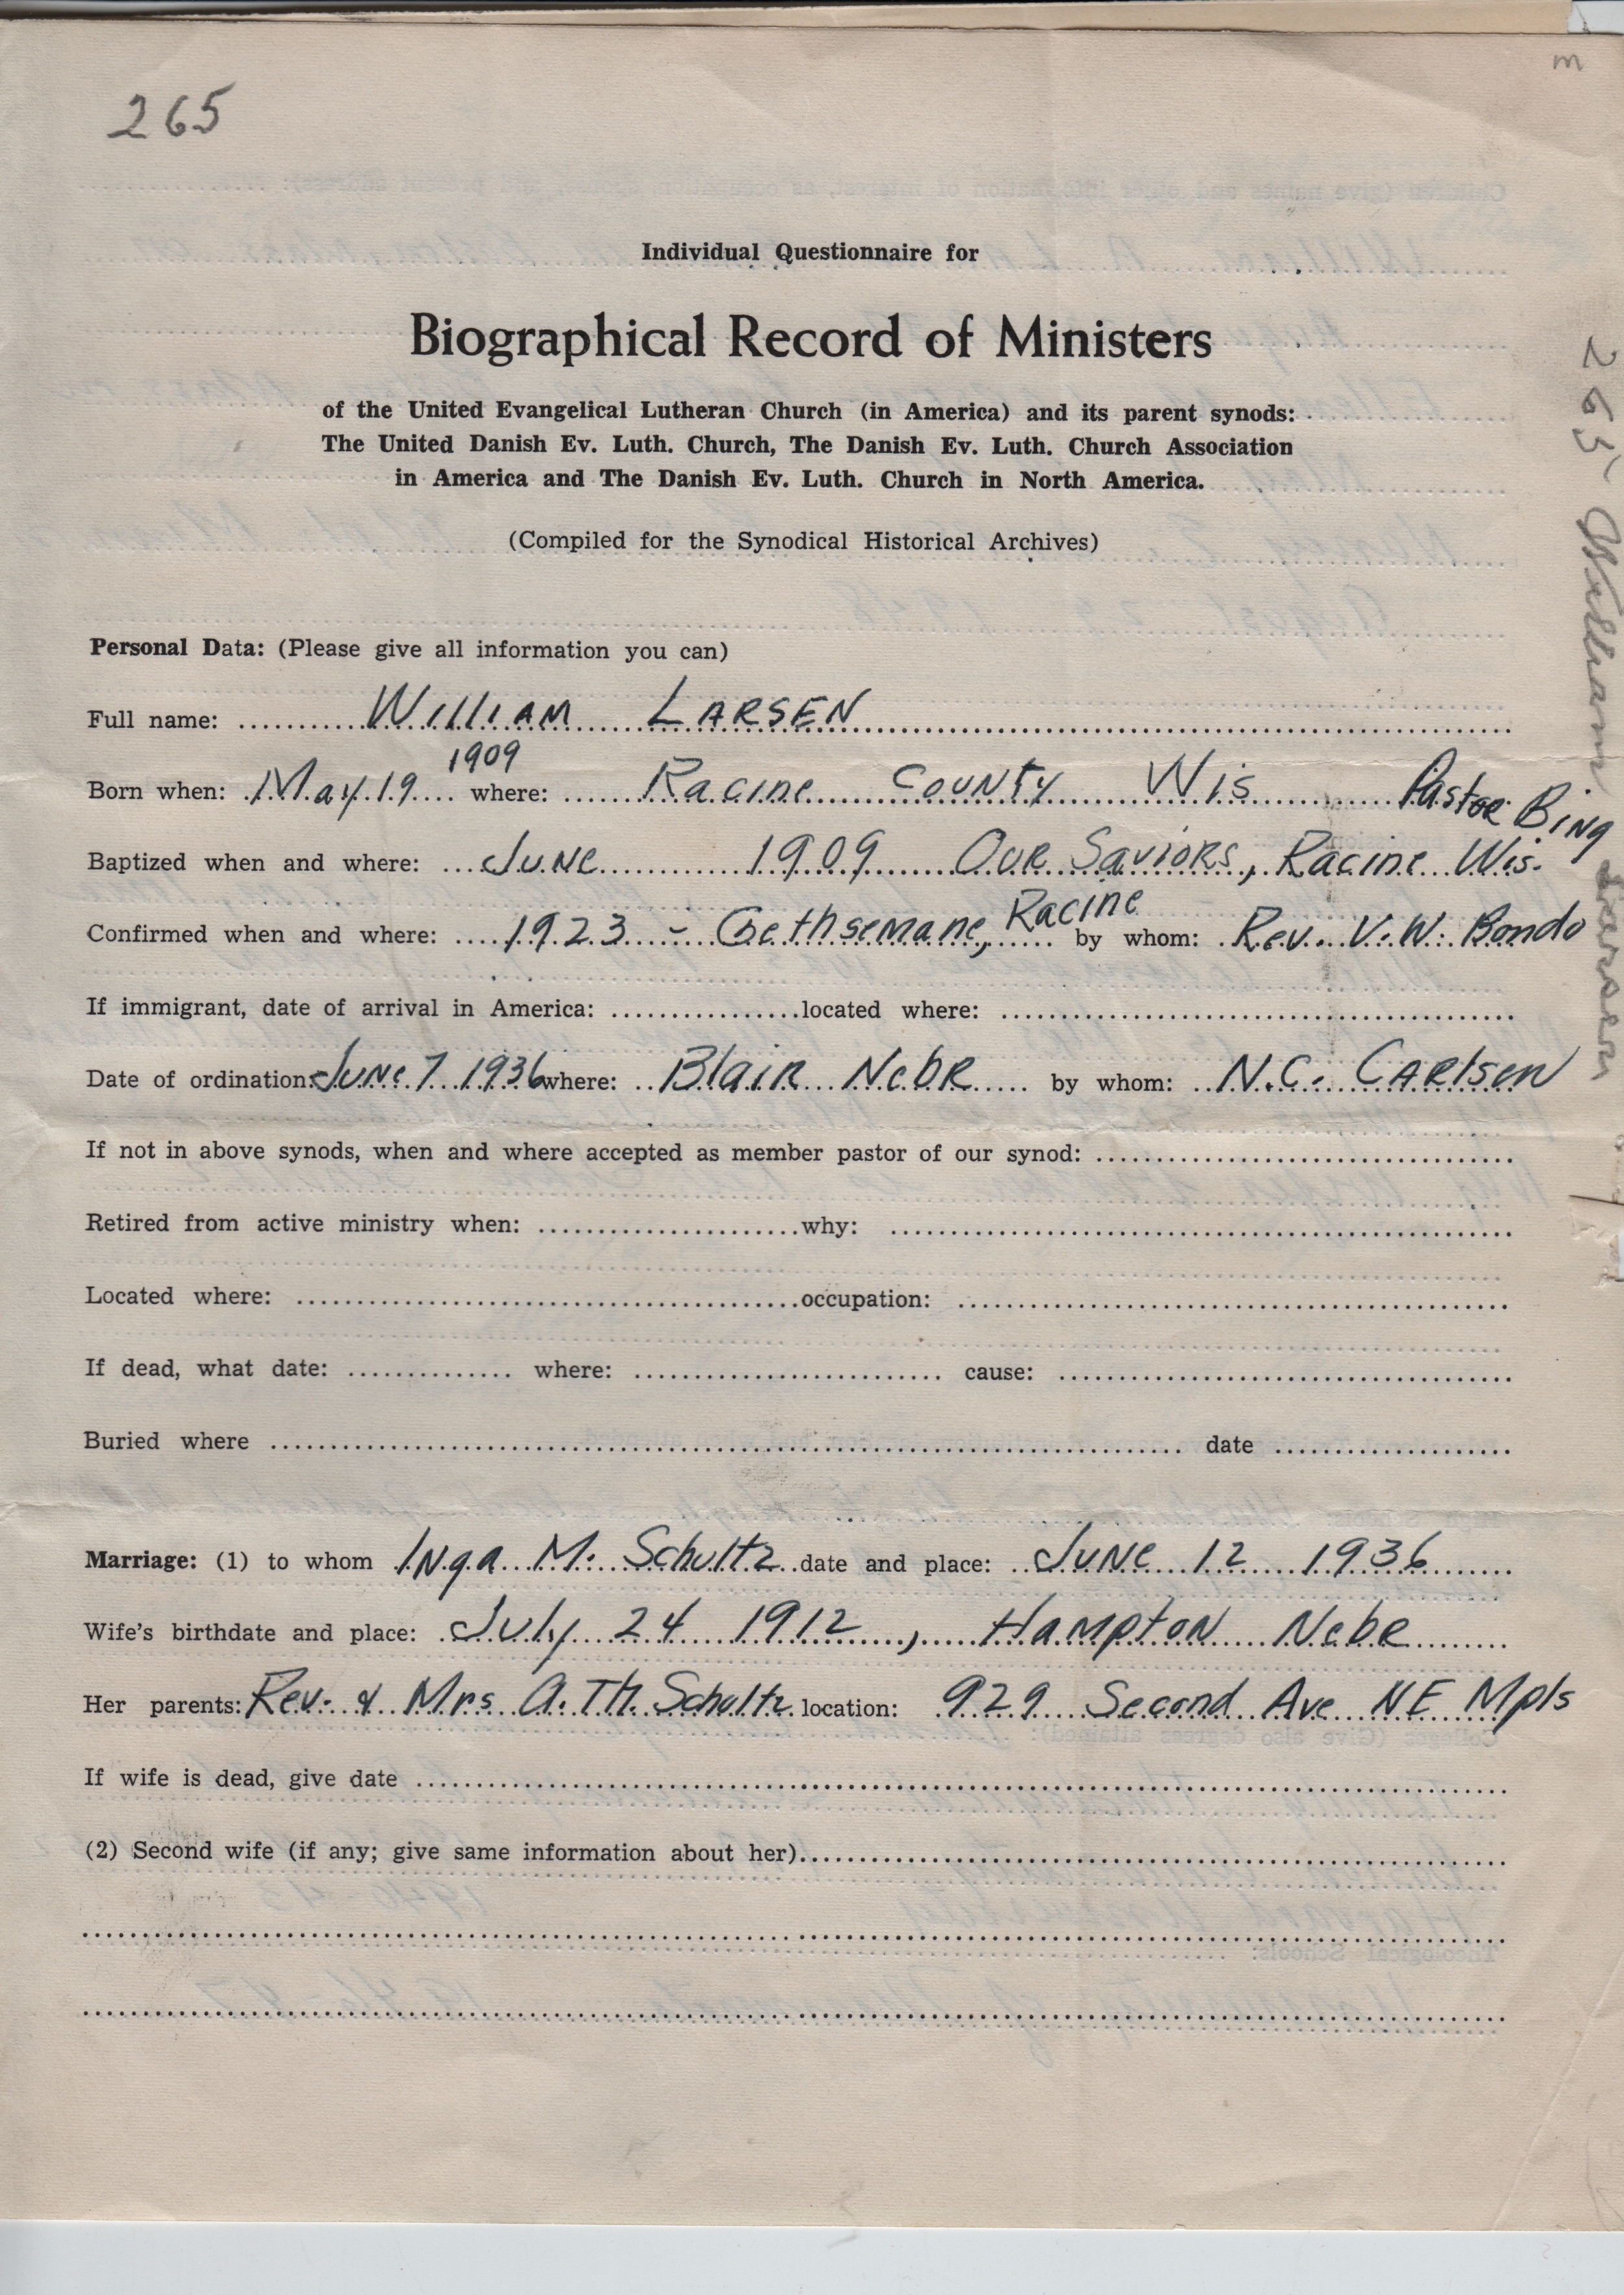 m
265
Individual Questionnaire for
Biographical Record of Ministers
of the United Evangelical Lutheran Church (in America) and its parent synods:
The United Danish Ev. Luth. Church, The Danish Ev. Luth. Church Association
in America and The Danish Ev. Luth. Church in North America.
(Compiled for the Synodical Historical Archives)
265 William Larsen
Personal Data: (Please give all information you can)
Full name: William Larsen
Born when: May 19 1909 where: Racine County Wis Pastor Bing
Baptized when and where: June 1909 Our Saviors, Racine Wis.
Confirmed when and where: 1923 - Gethsemane, Racine by whom: Rev. V.W. Bondo
If immigrant, date of arrival in America: located where:
Date of ordination: June 7 1936 where: Blair Nebr by whom: N.C. Carlsen
If not in above synods, when and where accepted as member pastor of our synod:
Retired from active ministry when: why:
Located where: occupation:
If dead, what date: where: cause:
Buried where date
Marriage: (1) to whom Inga M. Schultz date and place: June 12 1936
Wife's birthdate and place: July 24 1912, Hampton Nebr
Her parents: Rev. & Mrs A. Th. Schultz location: 929 Second Ave NE Mpls
If wife is dead, give date
(2) Second wife (if any; give same information about her)